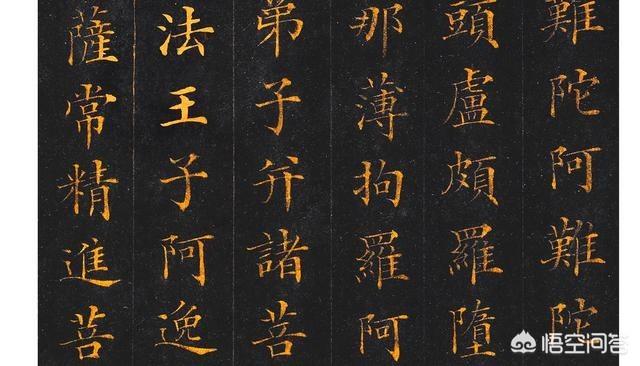 難陀阿難陀
頭盧頗羅墮
那薄拘羅阿
弟子并諸菩
法王子阿逸
薩常精進菩
悟空问答